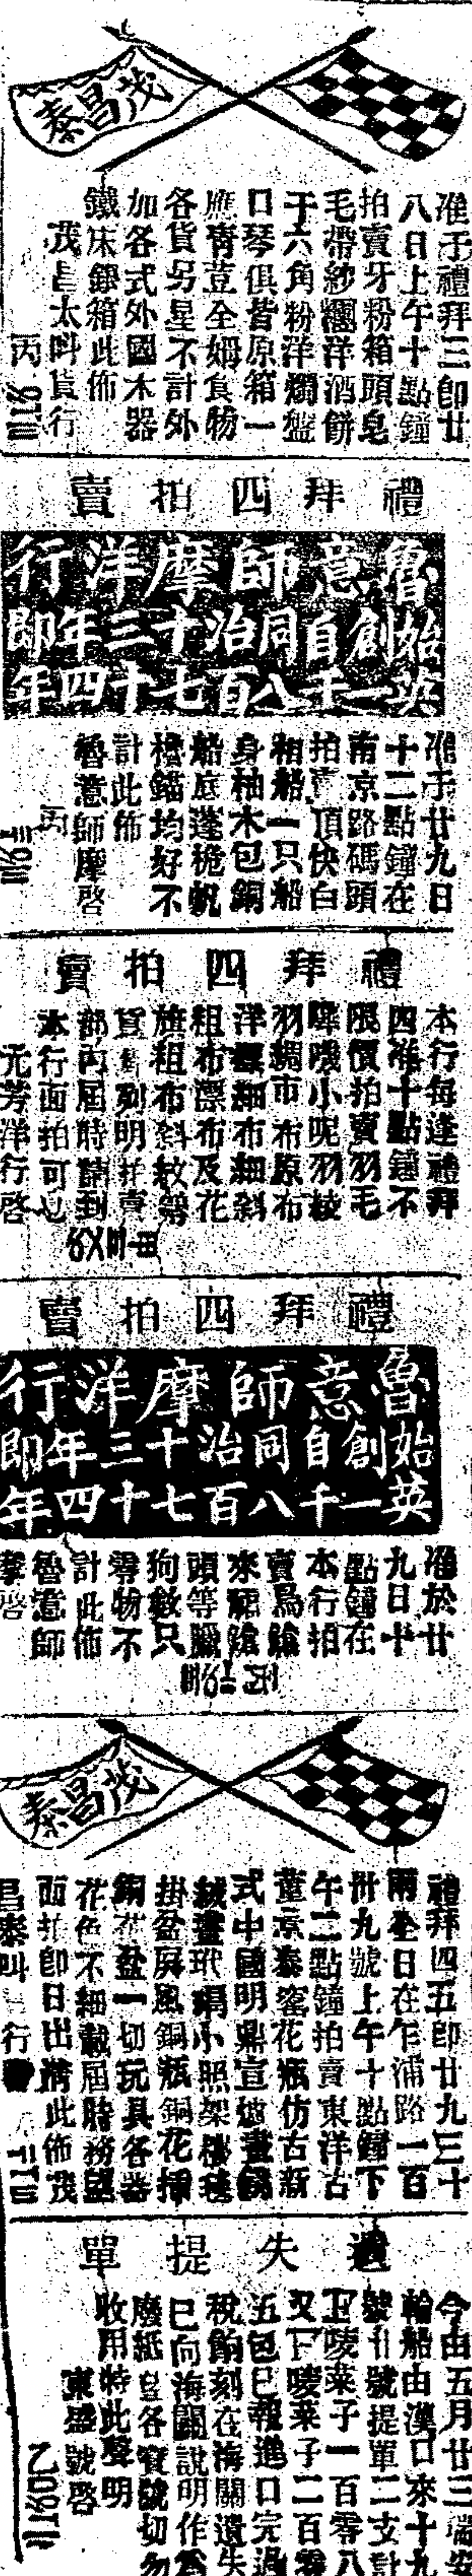 茂昌泰
准于禮拜三即廿
八日上午十點鐘
拍賣牙粉箱頭皂
毛帶紗洋酒餅
干六角粉洋燭盤
口琴俱皆原箱一
應荳全姆食物
各貨另星不計外
加各式外國木器
鐵床銀箱此佈
茂昌太叫貨行
丙
禮拜四拍賣
魯意師摩洋行
始創自同治十三年即
英一千八百七十四年
准于廿九日
十二點鐘在
南京路碼頭
拍賣頂快白
相船一只船
身柚木包銅
船底蓬桅帆
檣錨均好不
計此佈
魯意師摩啓
丙
禮拜四拍賣
本行每逢禮拜
四准十點鐘不
限價拍賣羽毛
嗶嘰小呢羽綾
羽綢市布原布
洋標細布細斜
粗布漂布及花
旗粗布斜紋等
貨列明拍賣
部內屆時請到
本行面拍可也
元芳洋行啓
禮拜四拍賣
魯意師摩洋行
始創自同治十三年即
英一千八百七十四年
准於廿
九日十
點鐘在
本行拍
賣鳥鎗
來福鎗
頭等臘
狗數只
零物不
計此佈
魯意師
摩啓
茂昌泰
禮拜四五即廿九三十
兩全日在乍浦路一百
卅九號上午十點鐘下
午二點鐘拍賣東洋古
董京泰窰花瓶仿古新
式中國明鼎宣爐畫
絨畫玳瑁小照架
掛盆屏風銅瓶銅花插
銅花盆一切玩具各器
花色不細載屆時務望
面拍即日出清此佈茂
昌泰叫行
遺失提單
今由五月廿三瑞安
輪船由漢口來十九
號廿號提單二支計
正唛菜子一百零八
又下唛菜子二百零
五包已報進口完過
稅餉刻在海關遺失
已向海關說明作爲
廢紙望各寶號切勿
收用特此聲明
東盛號啓